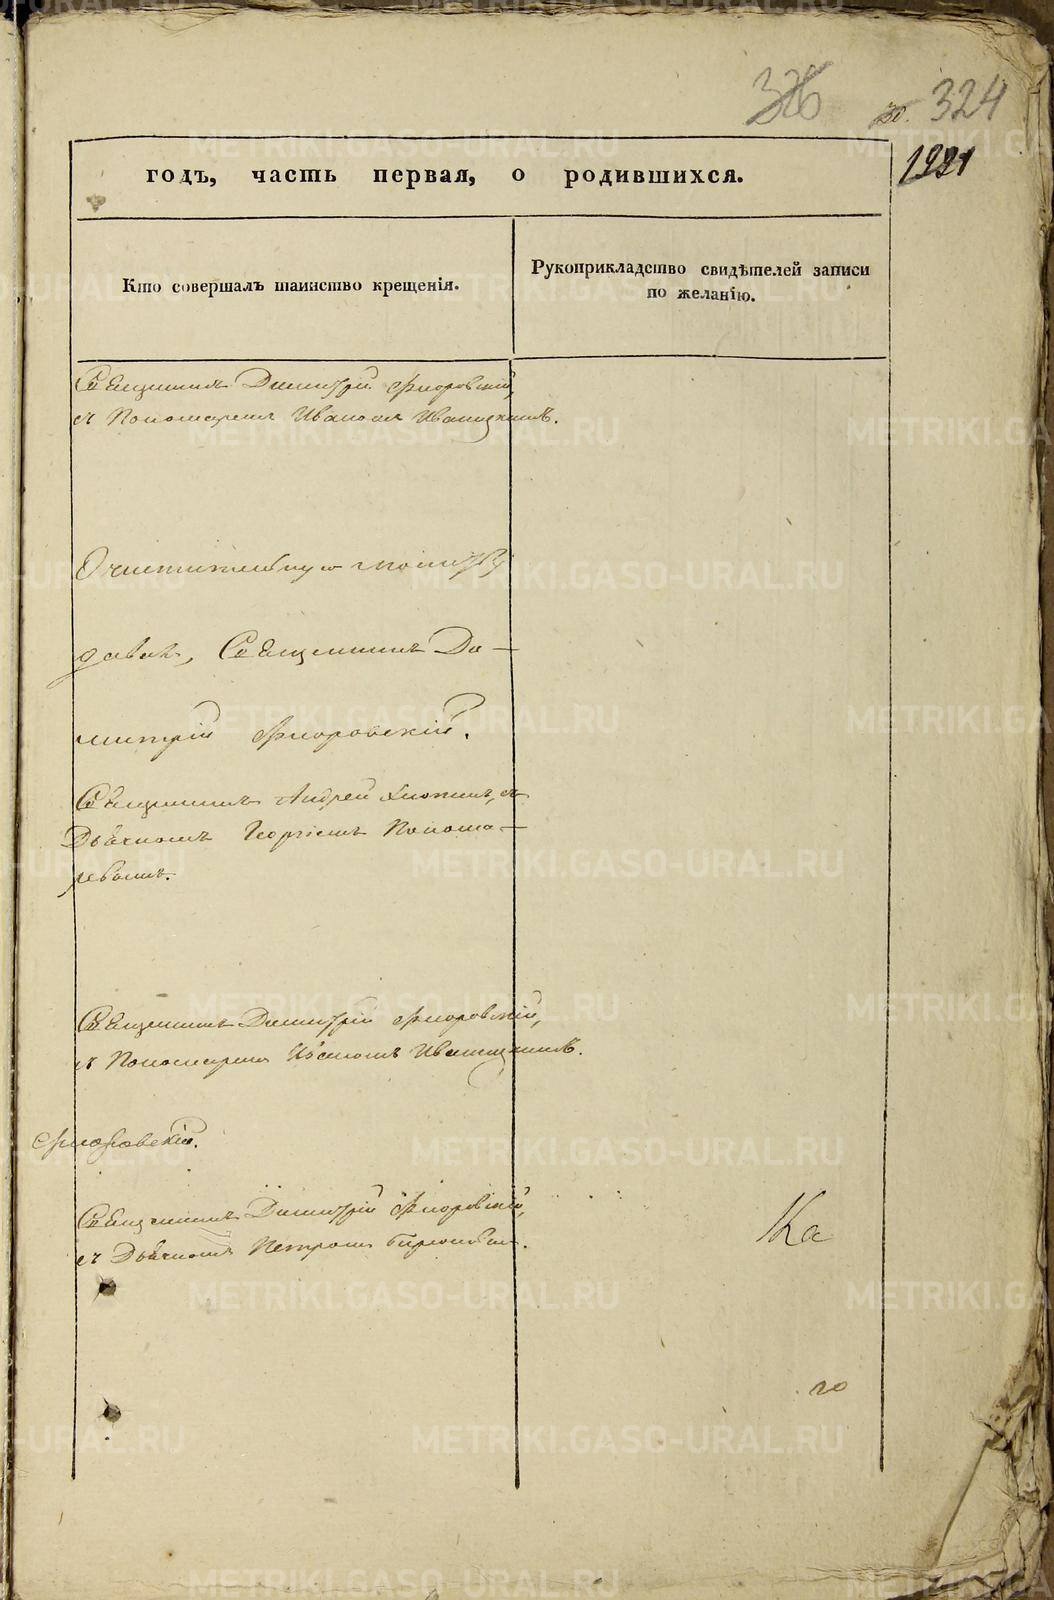 326
324
годъ, часть первая, о родившихся.
Кто совершалъ таинство крещенія.
Рукоприкладство свидѣтелей записи
по желанію.
Священникъ Димитрій Флоровскій,
съ Пономаремъ Иваномъ Иваницкимъ.
Очистительную молитву
давалъ, Священникъ Ди-
митрій Флоровскій.
Священникъ Андрей съ
Дьячкомъ Георгіемъ Понома-
ревымъ.
Священникъ Димитрій Флоровскій,
съ Пономаремъ Иваномъ Иваницкимъ.
Флоровскій.
Священникъ Димитрій Флоровскій,
съ Дьячкомъ Петромъ
Ка
го
METRIKI.GASO-URAL.RU